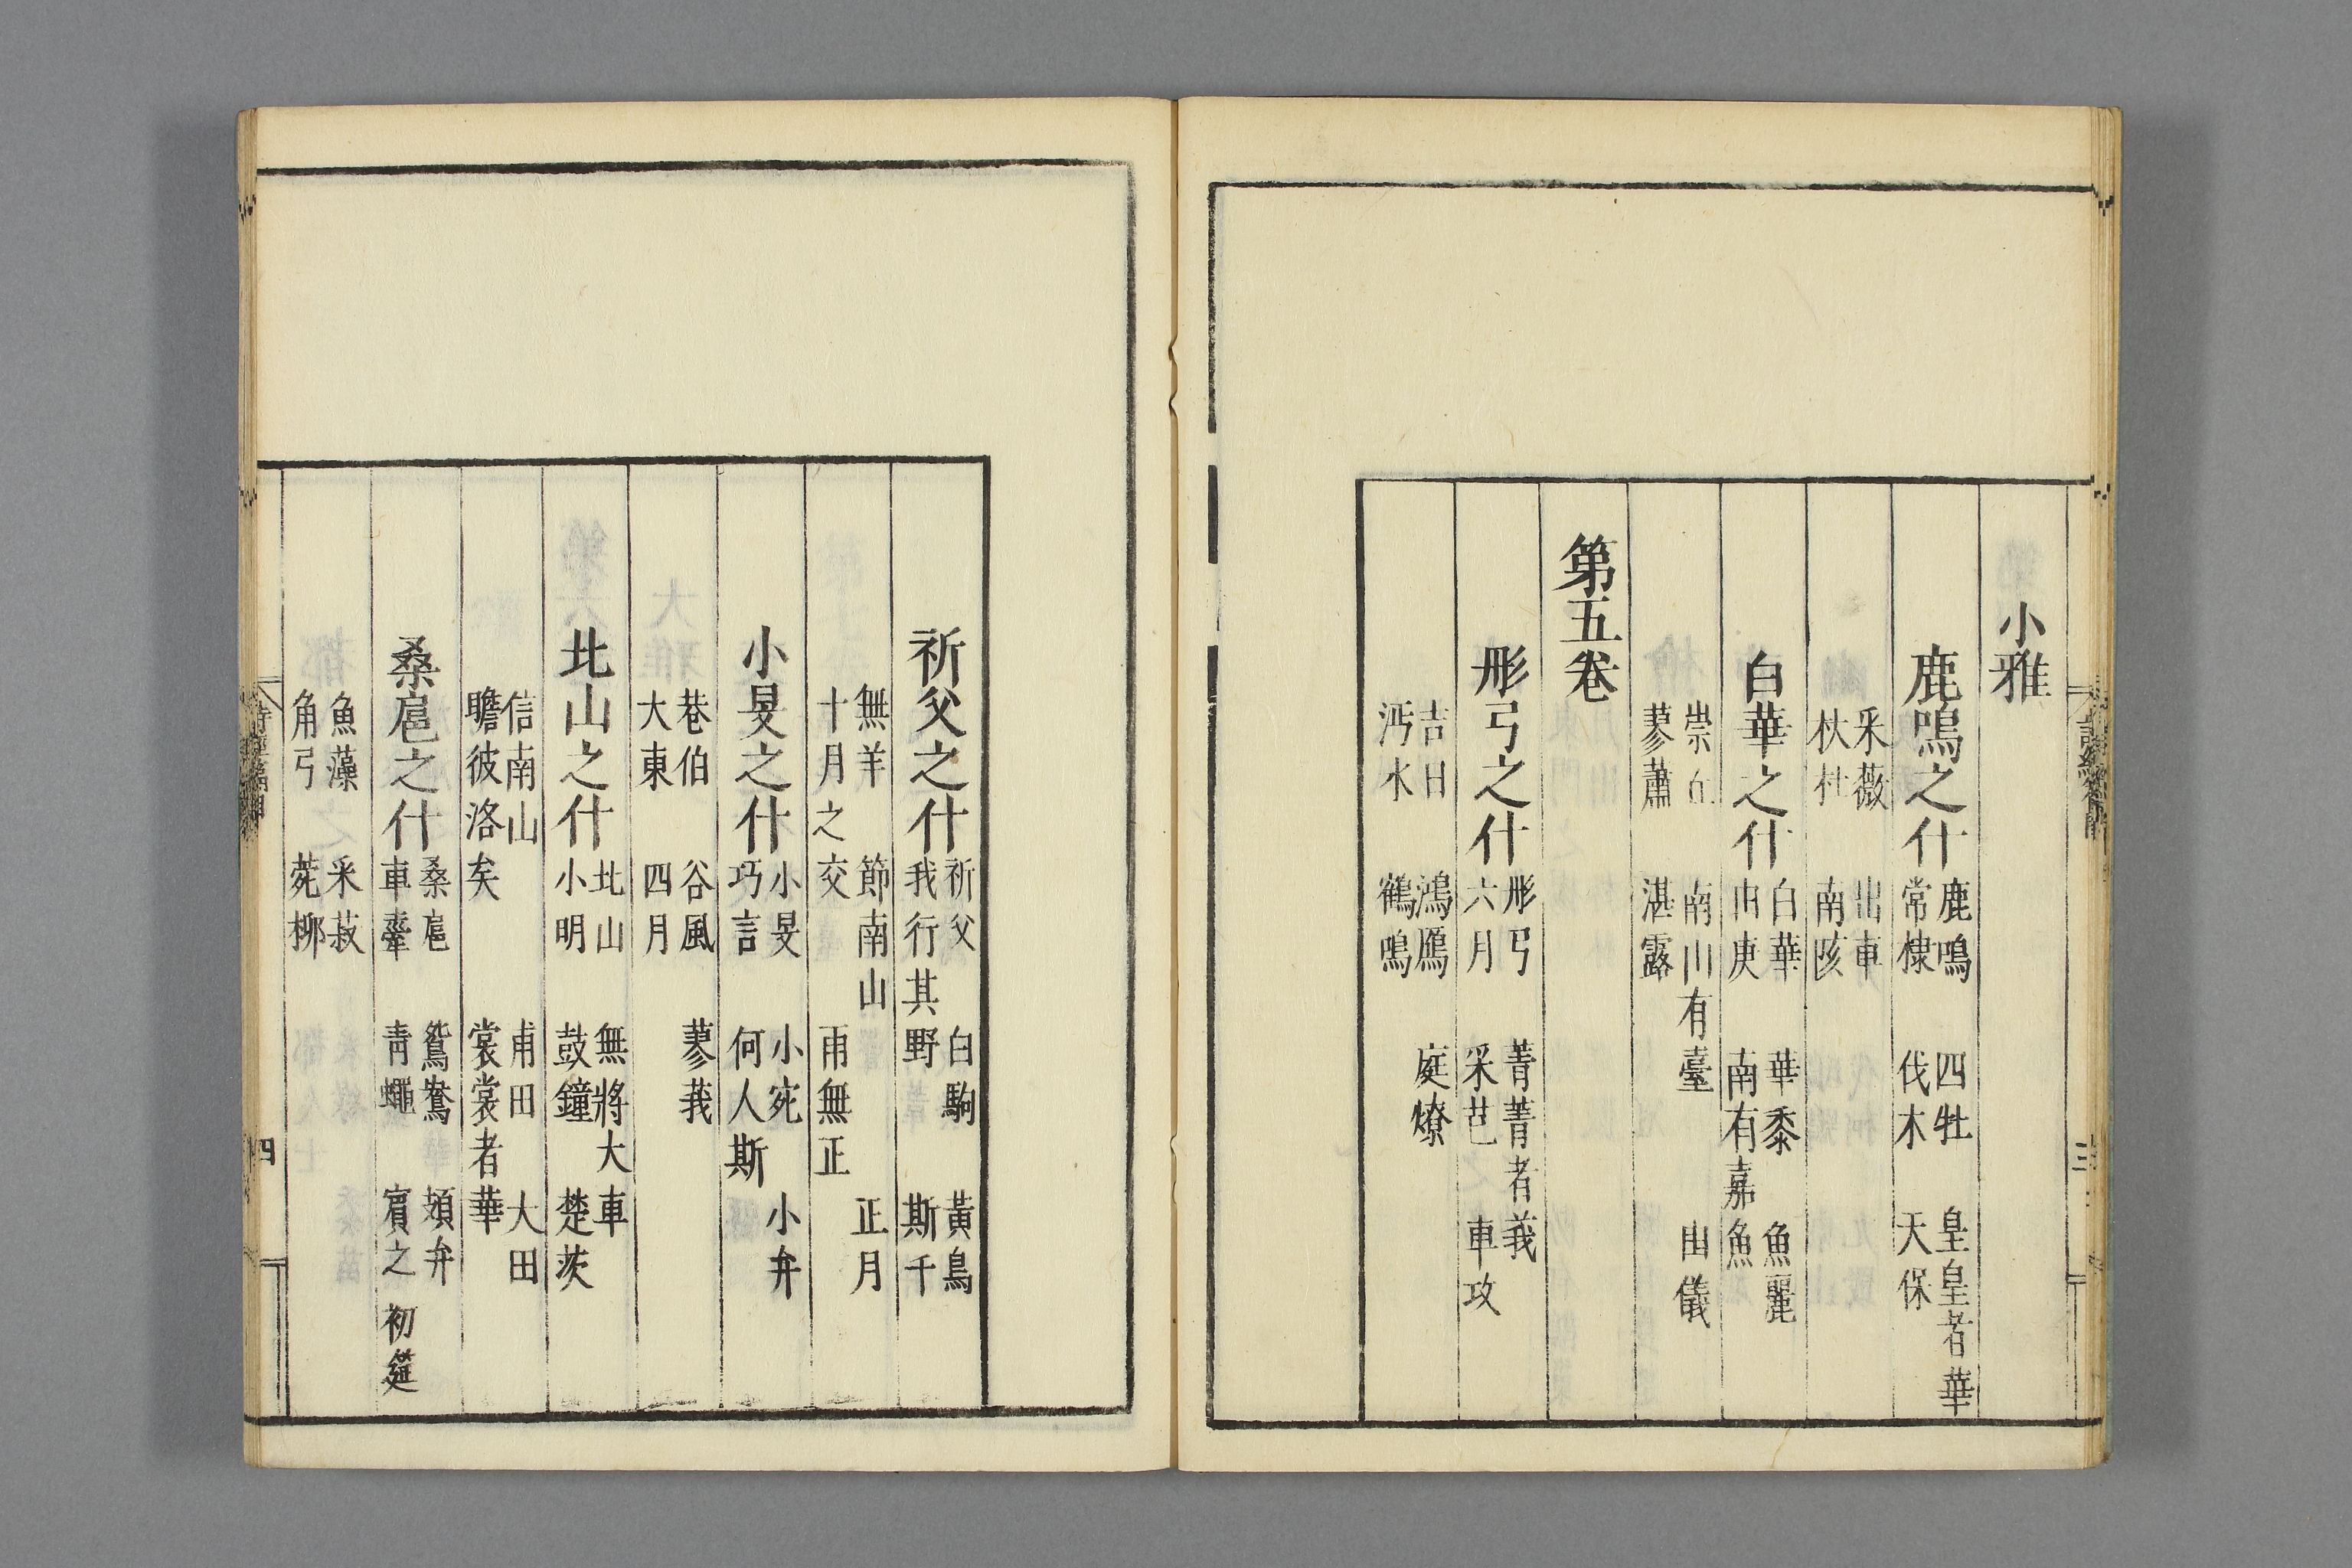 小雅
鹿鳴之什 鹿鳴 四牡 皇皇者華
常棣 伐木 天保
采薇 出車
杕杜 南陔
白華之什 白華 華黍 魚麗
由庚 南有嘉魚
崇丘 南山有臺 由儀
蓼蕭 湛露
第五卷
彤弓之什 彤弓 菁菁者莪
六月 采芑 車攻
吉日 鴻鴈 庭燎
沔水 鶴鳴
祈父之什 祈父 白駒 黃鳥
我行其野 斯干
無羊 節南山 正月
十月之交 雨無正
小旻之什 小旻 小宛 小弁
巧言 何人斯
巷伯 谷風 蓼莪
大東 四月
北山之什 北山 無將大車
小明 鼓鐘 楚茨
信南山 甫田 大田
瞻彼洛矣 裳裳者華
桑扈之什 桑扈 鴛鴦 頍弁
車舝 青蠅 賓之初筵
魚藻 采菽
角弓 菀柳
四